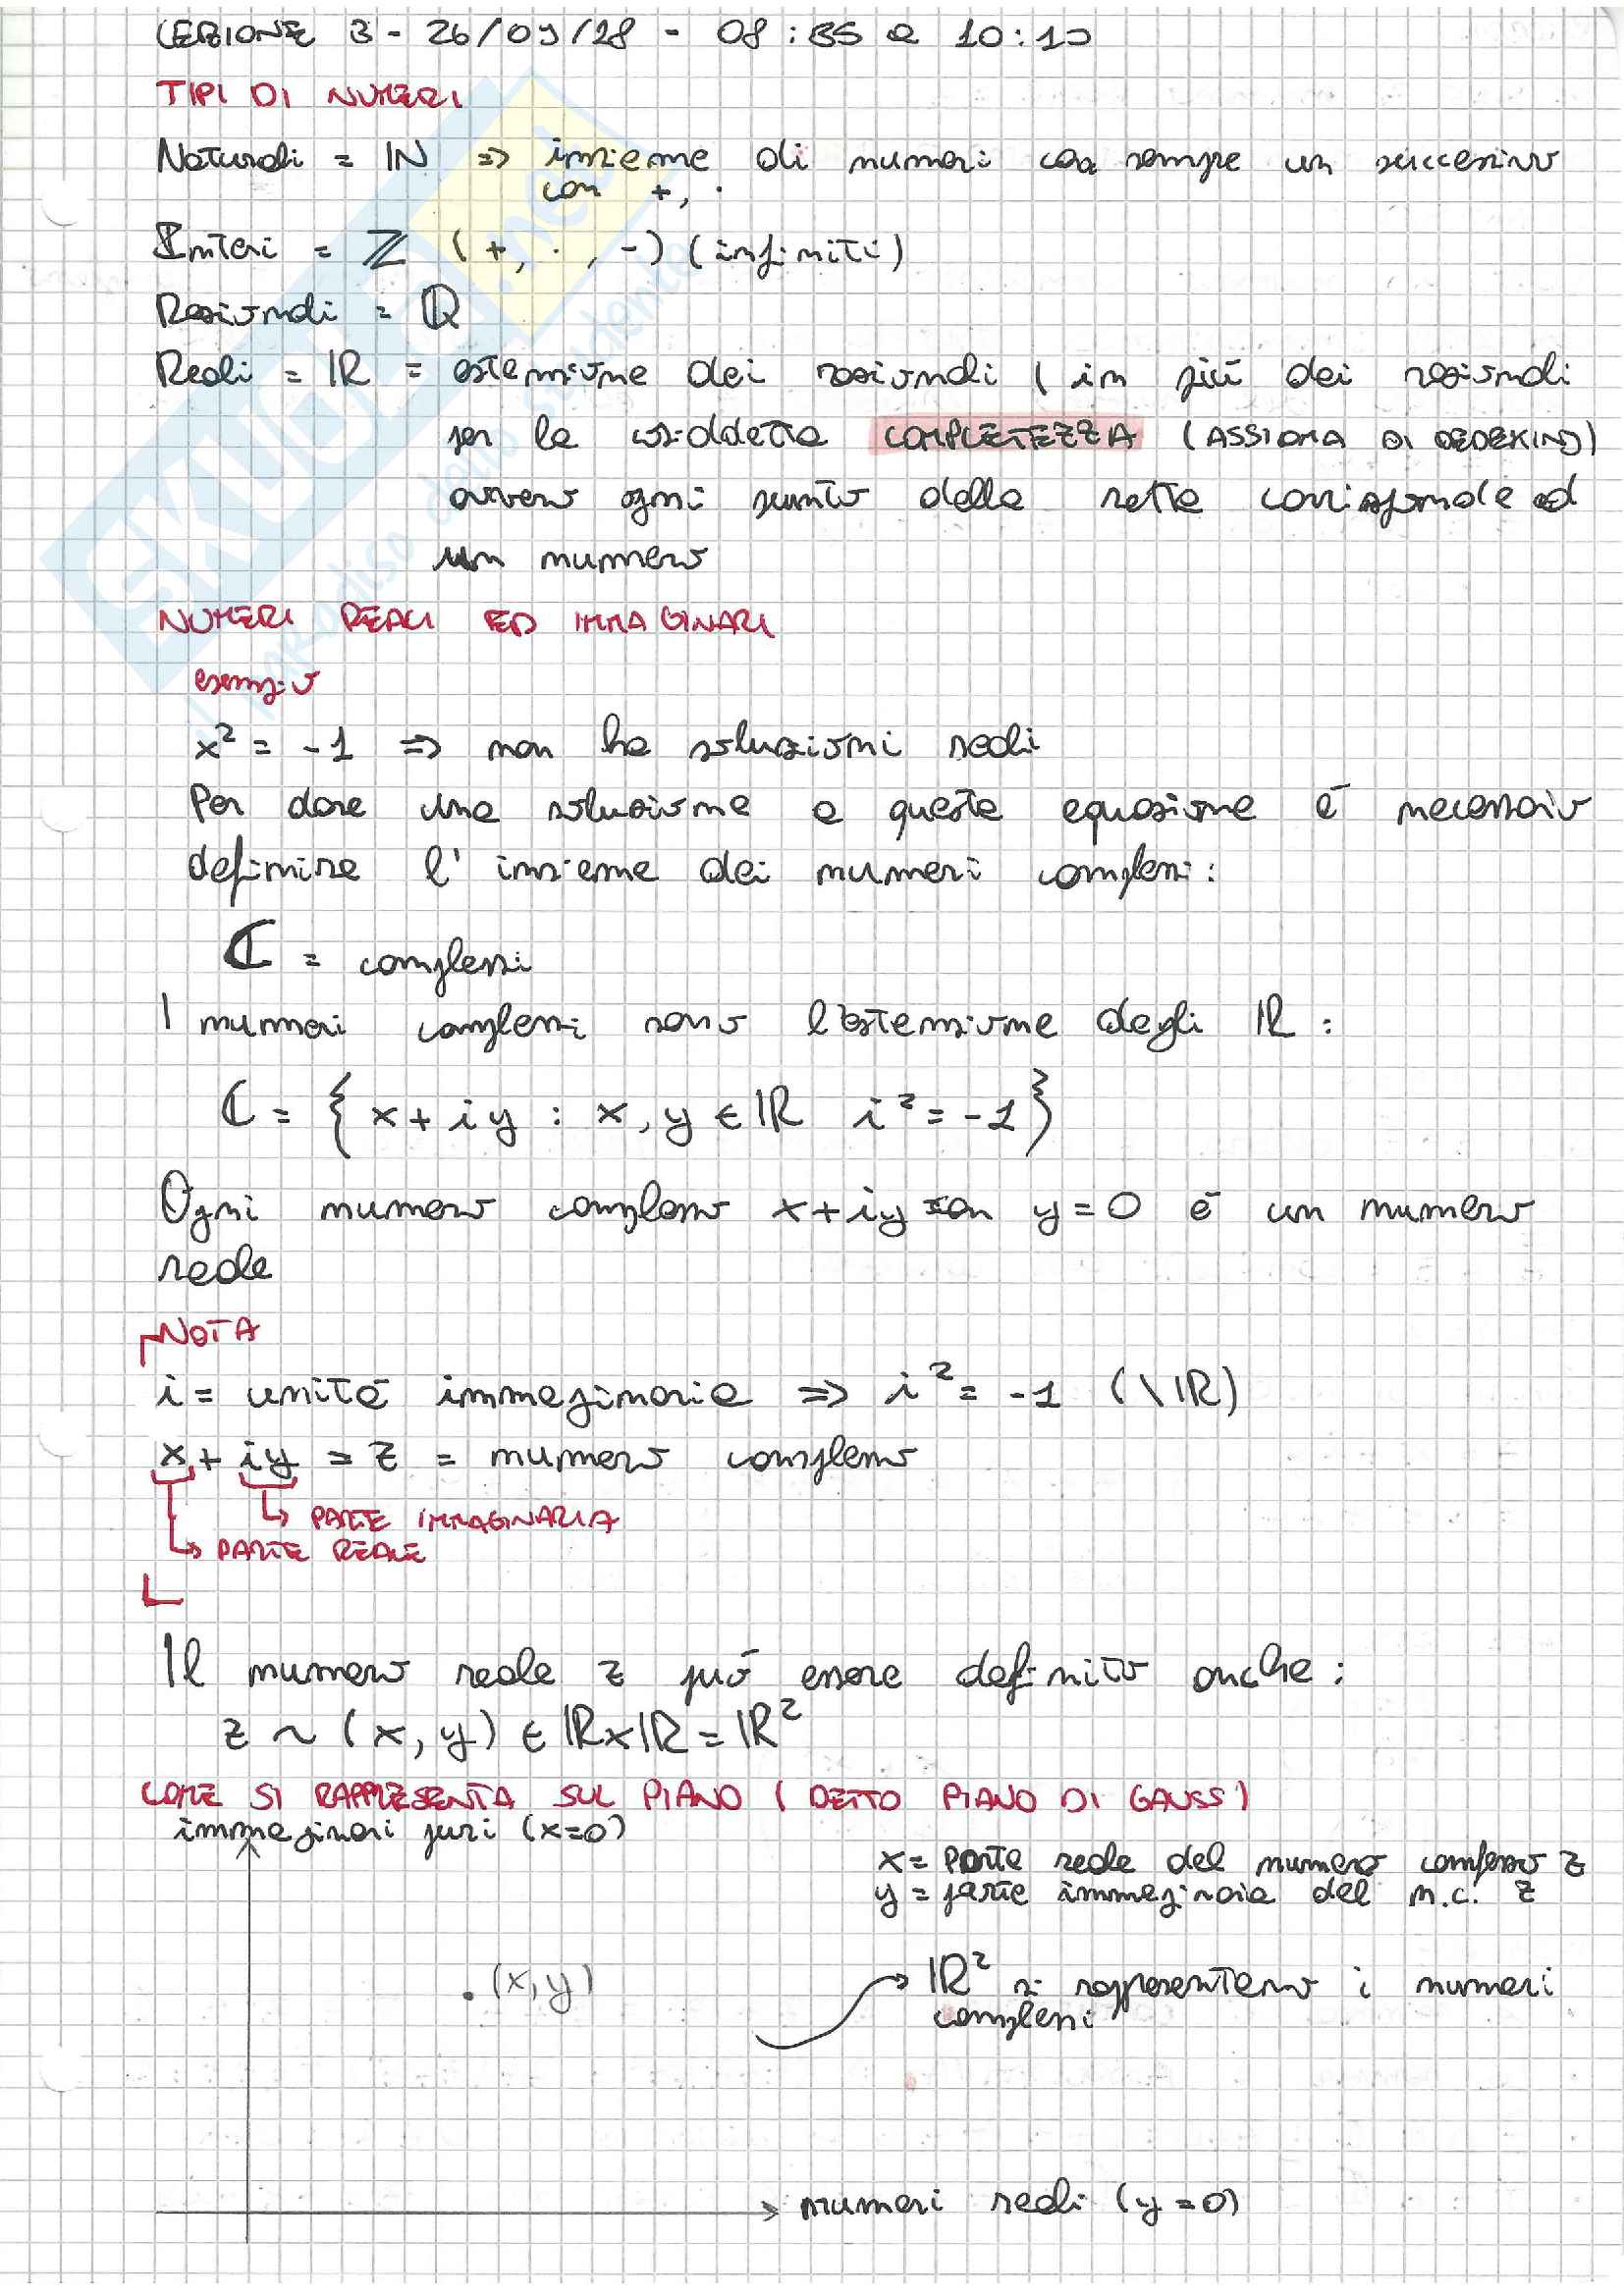 LEZIONE 3 - 26/09/28 - 08:35 a 10:10
TIPI DI NUMERI
Naturali = ℕ => insieme di numeri con sempre un successivo
con +, ·
Interi = ℤ (+, ·, -) (infiniti)
Razionali = ℚ
Reali = ℝ = estensione dei razionali (in più dei razionali
per la cosiddetta COMPLETEZZA (ASSIOMA DI DEDEKIND)
ovvero ogni punto della retta corrisponde ad
un numero
NUMERI REALI ED IMMAGINARI
esempio
x² = -1 => non ha soluzioni reali
Per dare una soluzione a questa equazione è necessario
definire l'insieme dei numeri complessi:
ℂ = complessi
I numeri complessi sono l'estensione degli ℝ:
ℂ = { x+iy : x, y ∈ ℝ i² = -1}
Ogni numero complesso x+iy con y=0 è un numero
reale
NOTA
i = unità immaginaria => i² = -1 (\ℝ)
x + iy = z = numero complesso
PARTE IMMAGINARIA
PARTE REALE
Il numero reale z può essere definito anche:
z ~ (x, y) ∈ ℝ×ℝ = ℝ²
COME SI RAPPRESENTA SUL PIANO (DETTO PIANO DI GAUSS)
immaginari puri (x=0)
x = Parte reale del numero complesso z
y = parte immaginaria del n.c. z
. (x, y)
ℝ² si rappresentano i numeri
complessi
numeri reali (y=0)
SKUOLA.net
il paradiso dello studente